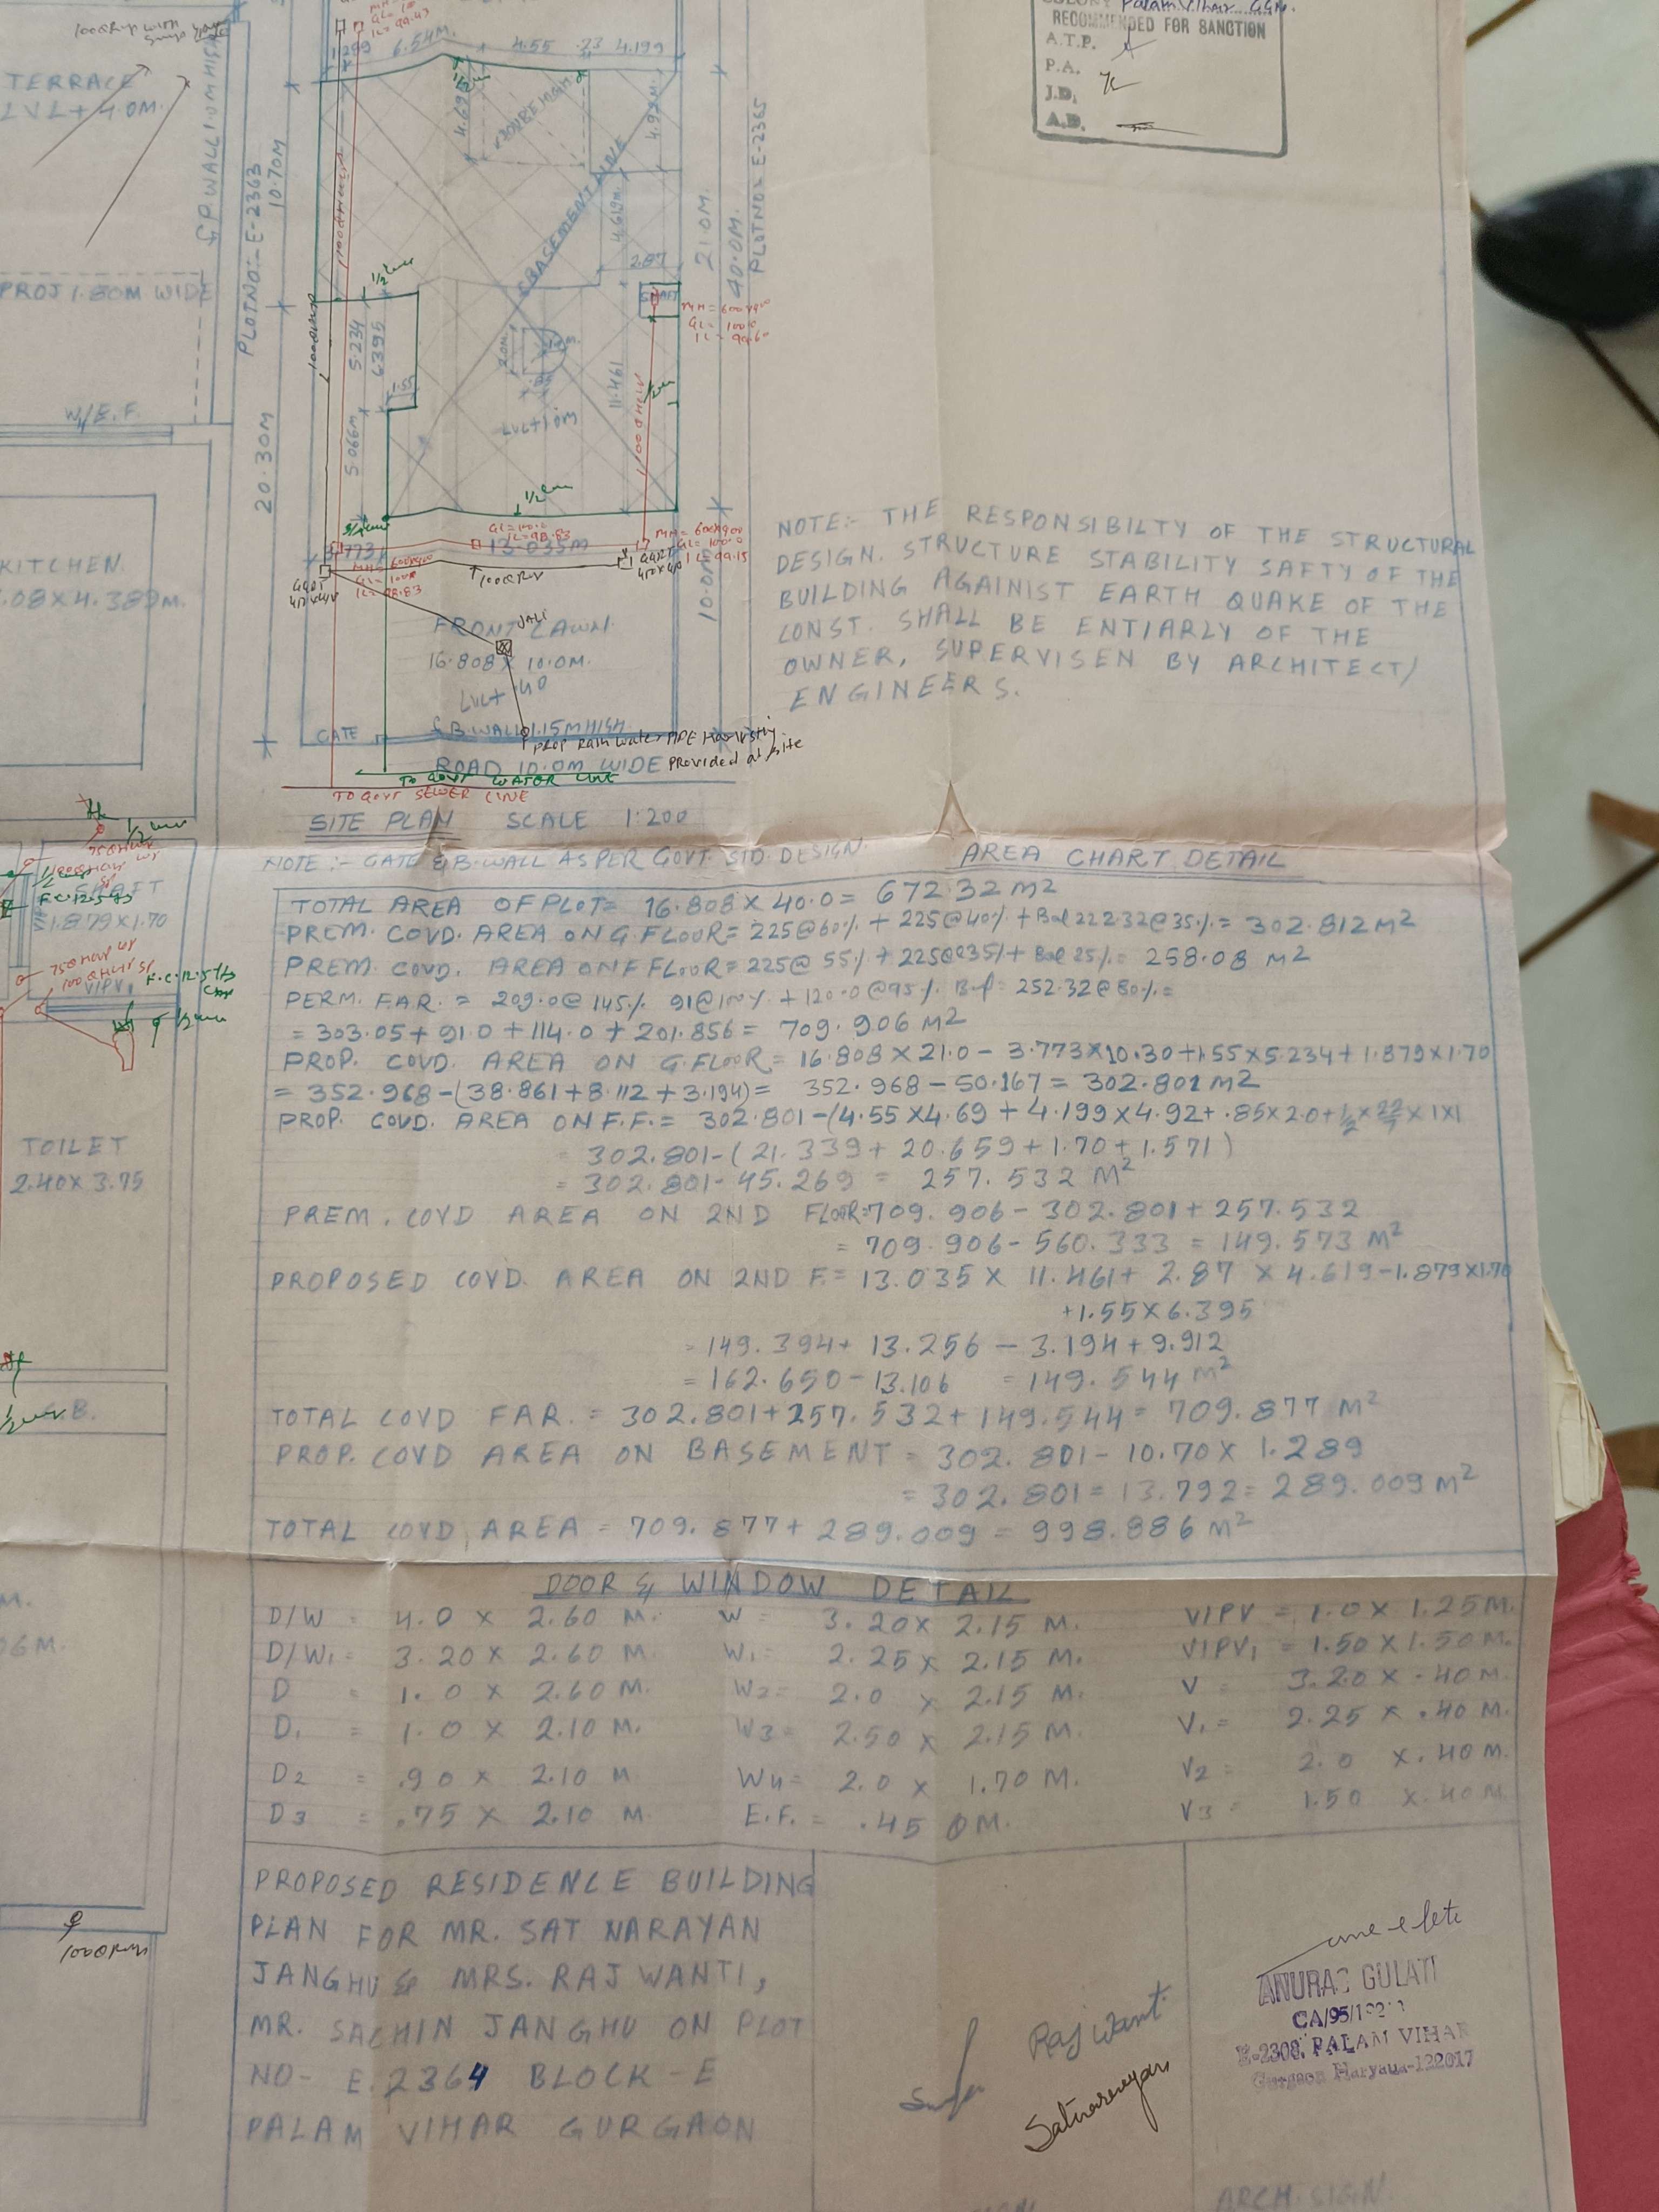 TERRACE
LVL+4.0M.
PROJ 1.80M WIDE
W/E.F.
KITCHEN.
TOILET
2.40X3.75
SHAFT
1.879X1.70
PLOTNO:- E-2363
10.70M
20.30M
6.54M.
4.55 .23 4.199
DOUBLE HIGH
4.92M
BASEMENT LINE
4.619M
2.87
SHAFT
21.0M.
40.0M.
PLOTNO:- E-2365
5.234
6.395
1.55
5.066M
11.461
LVL+1.0M
13.035M
10.0M
FRONT LAWN.
16.808 X 10.0M.
LVL+ .40
GATE
B.WALL 1.15M HIGH
Prop Rain water
Provided at site
ROAD 10.0M WIDE
TO GOVT WATER LINE
TO GOVT SEWER LINE
SITE PLAN SCALE 1:200
Palam Vihar GGN.
RECOMMENDED FOR SANCTION
A.T.P.
P.A.
J.D.
A.D.
NOTE:- THE RESPONSIBILTY OF THE STRUCTURAL
DESIGN. STRUCTURE STABILITY SAFTY OF THE
BUILDING AGAINIST EARTH QUAKE OF THE
CONST. SHALL BE ENTIARLY OF THE
OWNER, SUPERVISEN BY ARCHITECT/
ENGINEERS.
NOTE:- GATE & B.WALL AS PER GOVT. STD. DESIGN.
AREA CHART DETAIL
TOTAL AREA OF PLOT= 16.808 X 40.0= 672.32 M2
PREM. COVD. AREA ON G.FLOOR= 225@60% + 225@40% + Bal 222.32@35%= 302.812 M2
PREM. COVD. AREA ON F FLOOR= 225@ 55% + 225@35% + Bal 25%= 258.08 M2
PERM. F.A.R. = 209.0@ 145% 91@100% + 120.0@95% Bal= 252.32@80%=
= 303.05+ 91.0 + 114.0 + 201.856= 709.906 M2
PROP. COVD. AREA ON G.FLOOR= 16.808 X 21.0 - 3.773X10.30+1.55X5.234+1.879X1.70
= 352.968-(38.861+8.112+3.194)= 352.968-50.167= 302.801 M2
PROP. COVD. AREA ON F.F.= 302.801-(4.55 X4.69 + 4.199X4.92+.85X2.0+½X22/7X1X1
= 302.801-(21.339+ 20.659+1.70+1.571)
= 302.801-45.269 = 257.532 M2
PREM. COVD AREA ON 2ND FLOOR=709.906-302.801+257.532
= 709.906-560.333 = 149.573 M2
PROPOSED COVD. AREA ON 2ND F.= 13.035 X 11.461+ 2.87 X 4.619-1.879X1.70
+1.55X6.395
= 149.394+ 13.256 - 3.194+9.912
= 162.650-13.106 = 149.544 M2
TOTAL COVD FAR. = 302.801+257.532+149.544= 709.877 M2
PROP. COVD AREA ON BASEMENT = 302.801-10.70X 1.289
= 302.801= 13.792= 289.009 M2
TOTAL COVD. AREA = 709.877+ 289.009 = 998.886 M2
DOOR & WINDOW DETAIL
D/W = 4.0 X 2.60 M. W = 3.20X 2.15 M. VIPV = 1.0X 1.25M.
D/W1= 3.20X 2.60 M. W1= 2.25X 2.15 M. VIPV1 = 1.50X1.50M.
D = 1.0 X 2.60 M. W2= 2.0 X 2.15 M. V = 3.20X .40M.
D1 = 1.0 X 2.10 M. W3= 2.50 X 2.15 M. V1= 2.25 X .40 M.
D2 = .90X 2.10 M W4= 2.0 X 1.70 M. V2= 2.0 X.40M.
D3 = .75 X 2.10 M. E.F.= .45 ØM. V3= 1.50 X.40M
PROPOSED RESIDENCE BUILDING
PLAN FOR MR. SAT NARAYAN
JANGHU & MRS. RAJ WANTI,
MR. SACHIN JANGHU ON PLOT
NO- E.2364 BLOCK-E
PALAM VIHAR GURGAON
Raj Wanti
Satnarayan
ANURAG GULATI
E-2308, PALAM VIHAR
Gurgaon Haryana-122017
ARCH.SIGN.